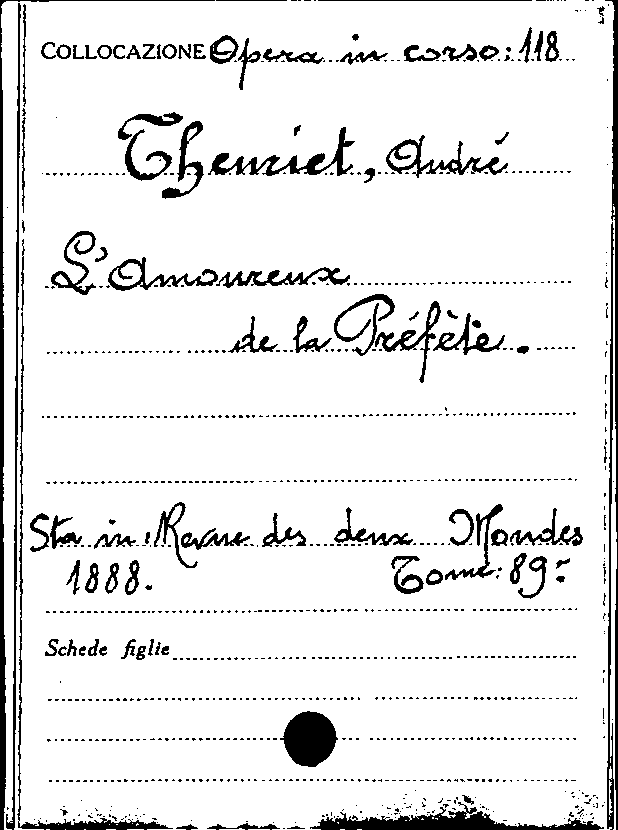 COLLOCAZIONE Opera in corso: 118
Theuriet, André
L'Amoureux
de la Préfète.
Sta in: Revue des deux Mondes
1888. Tome: 89-
Schede figlie